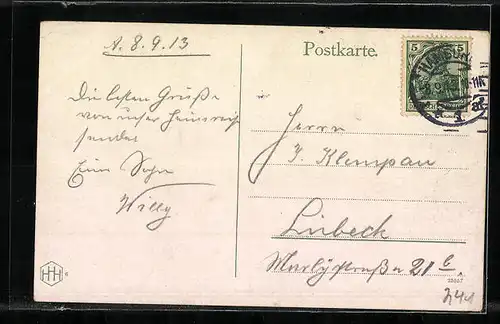 A. 8.9.13
Die besten Grüße
von unser Heimreise
sendet
Euer Sohn
Willy
Postkarte.
5 5
Herrn
J. Klempau
Lübeck
Marlystraße 21 b.
HH
344